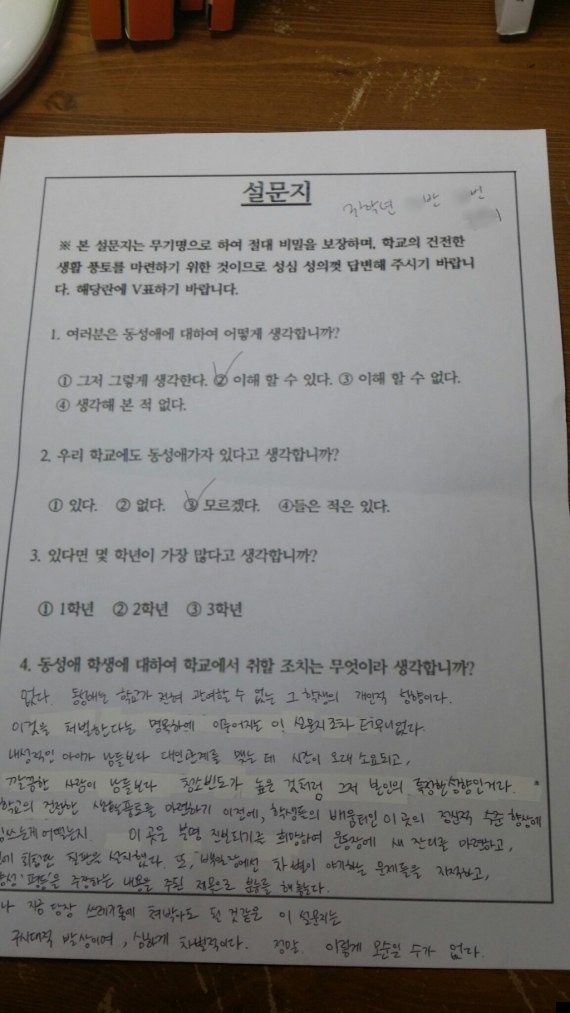 설문지
3학년 반 번
※ 본 설문지는 무기명으로 하여 절대 비밀을 보장하며, 학교의 건전한
생활 풍토를 마련하기 위한 것이므로 성심 성의껏 답변해 주시기 바랍니
다. 해당란에 V표하기 바랍니다.
1. 여러분은 동성애에 대하여 어떻게 생각합니까?
① 그저 그렇게 생각한다. ② 이해 할 수 있다. ③ 이해 할 수 없다.
④ 생각해 본 적 없다.
2. 우리 학교에도 동성애가자 있다고 생각합니까?
① 있다. ② 없다. ③ 모르겠다. ④들은 적은 있다.
3. 있다면 몇 학년이 가장 많다고 생각합니까?
① 1학년 ② 2학년 ③ 3학년
4. 동성애 학생에 대하여 학교에서 취할 조치는 무엇이라 생각합니까?
없다. 동성애는 학교가 전혀 관여할 수 없는 그 학생의 개인적 성향이다.
이것을 처벌한다는 명목하에 이루어지는 이 설문지조차 터무니없다.
내성적인 아이가 남들보다 대인관계를 맺는 데 시간이 오래 소요되고,
깔끔한 사람이 남들보다 청소빈도가 높은 것처럼 그저 본인의 특정한 성향인거라.
학교의 건전한 생활풍토를 마련하기 이전에, 학생들의 배움터인 이 곳의 정신적 수준 향상에
힘쓰는게 어떻는지. 이 곳은 분명 진보되기를 희망하여 운동장에 새 잔디를 마련하고,
칠판을 설치했다. 또, 백일장에선 차별이 야기하는 문제들을 지적하고,
'평등'을 주장하는 내용을 주된 제목으로 분류를 해놓았다.
지금 당장 쓰레기통에 쳐박아도 될 것같은 이 설문지는
구시대적 발상이며, 심하게 차별적이다. 정말. 이렇게 모순일 수가 없다.